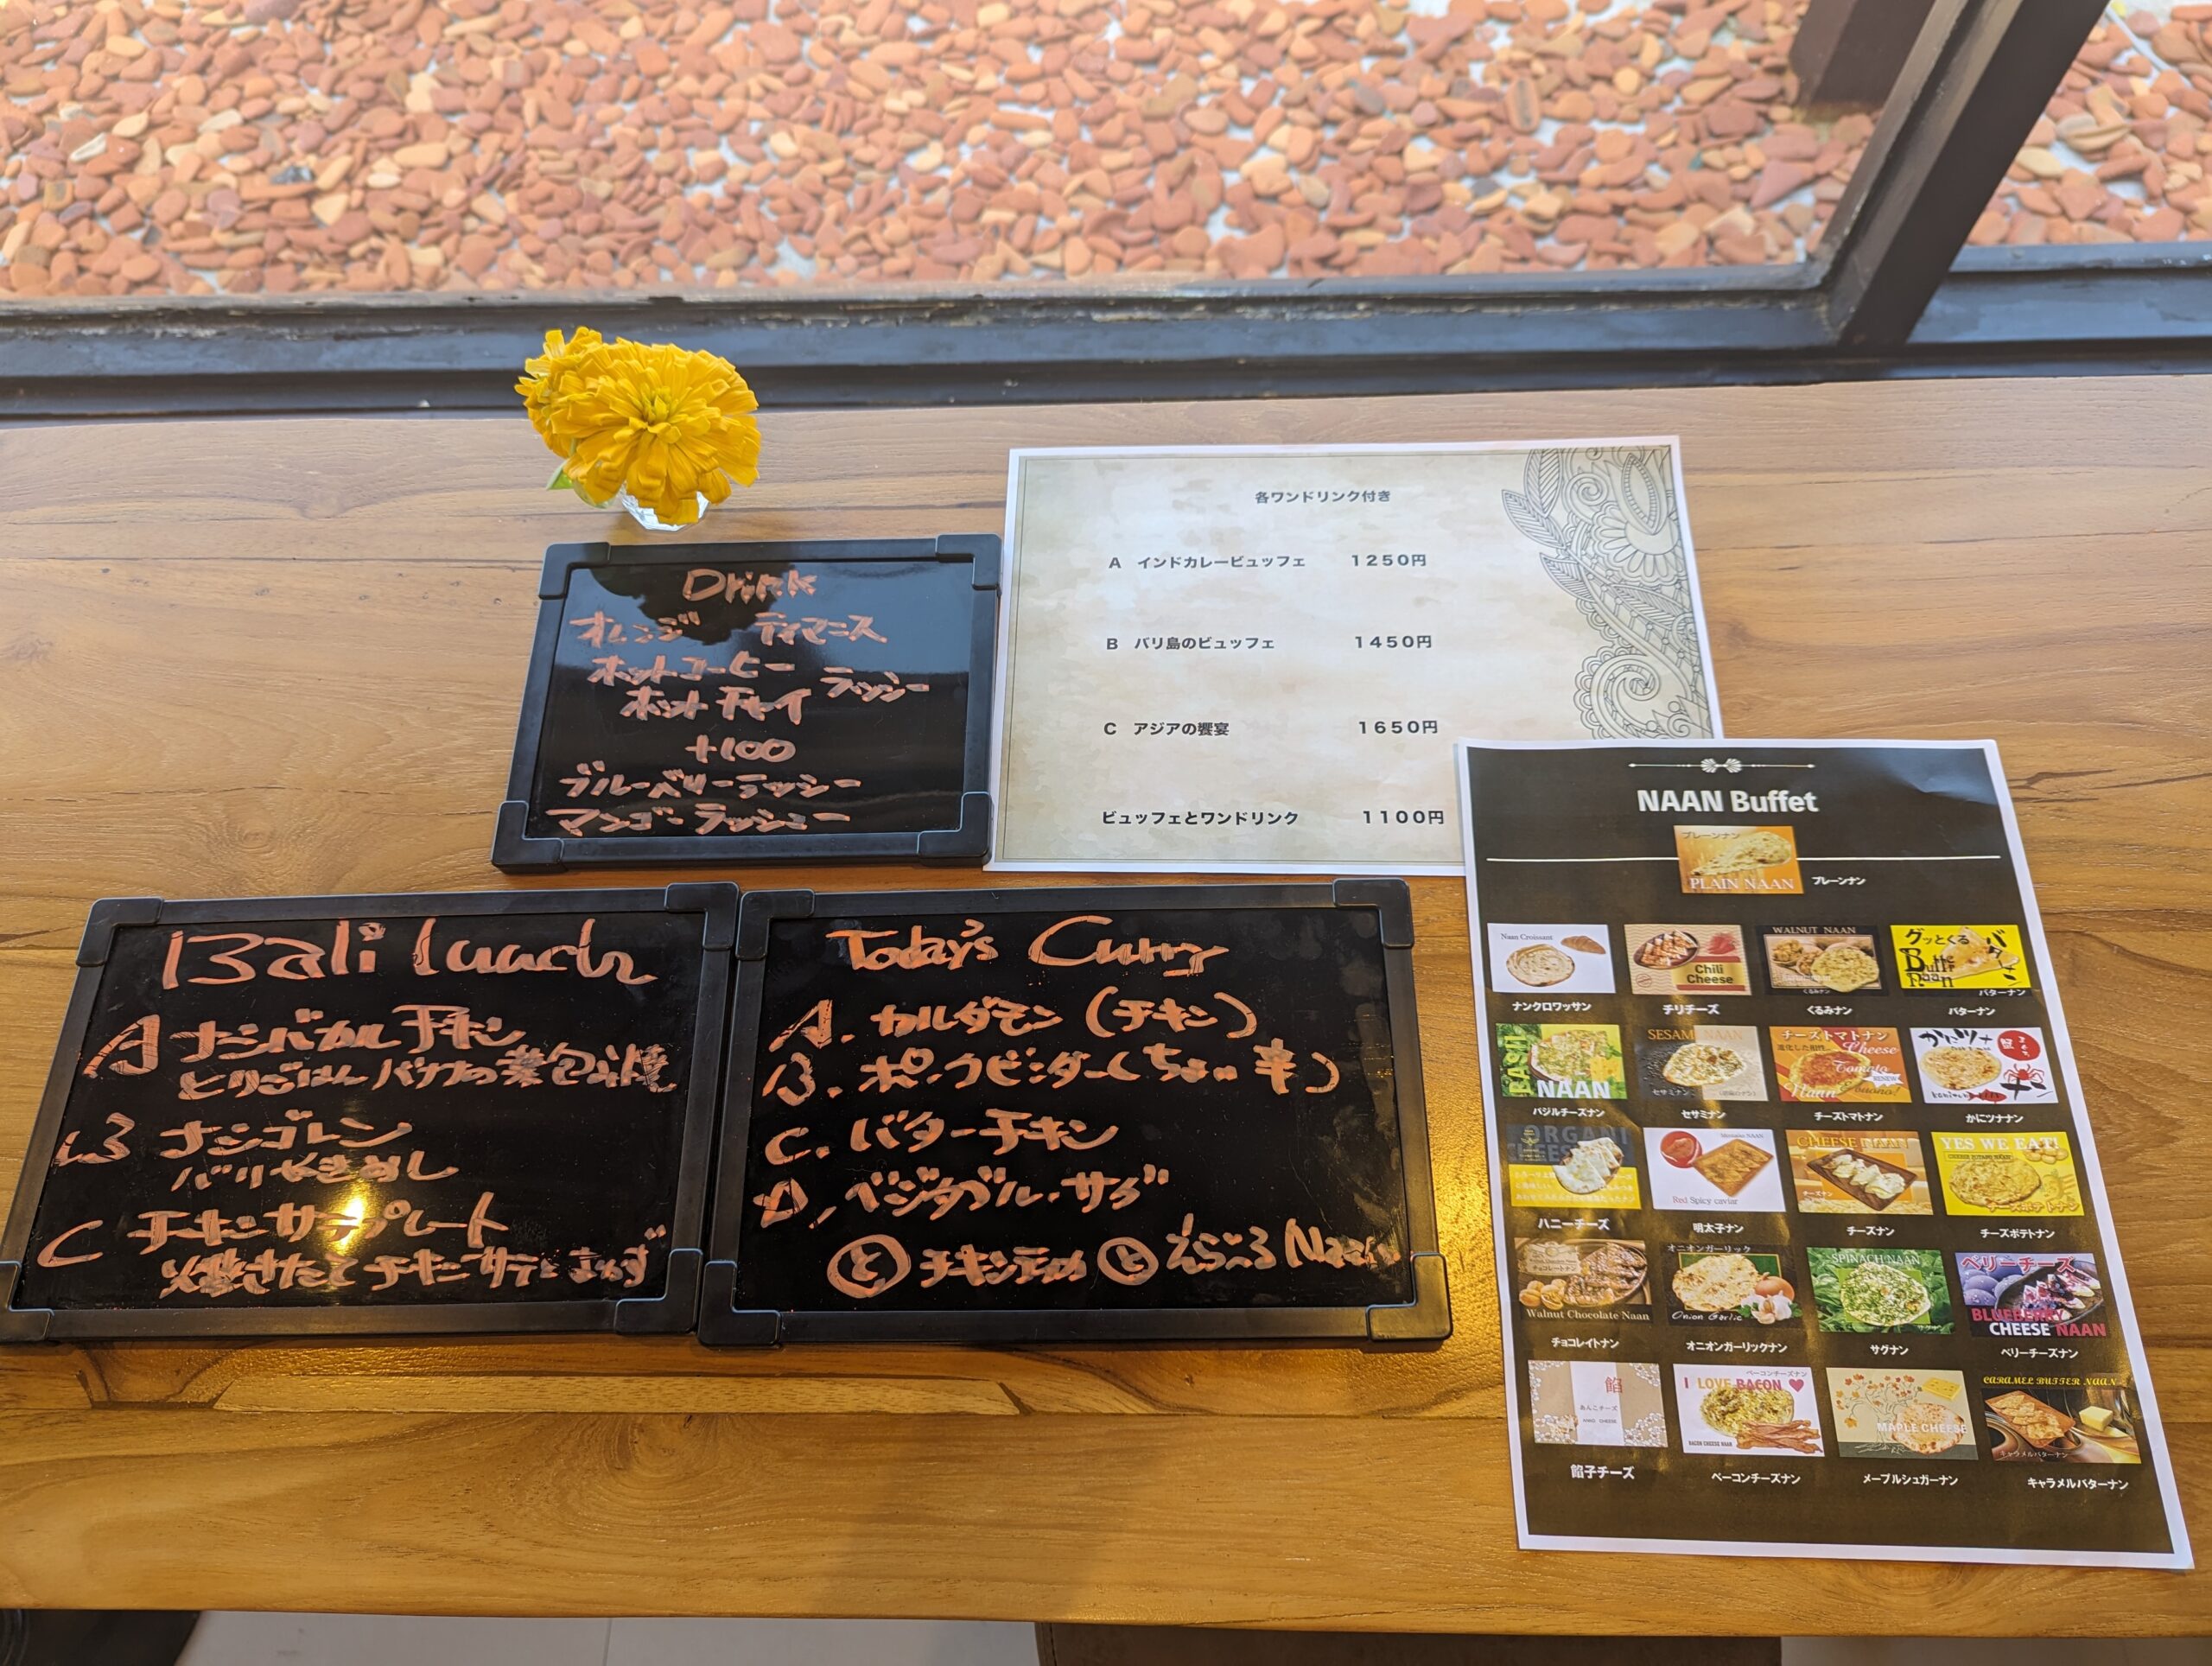 Drink
オレンジ ティマニス
ホットコーヒー ラッシー
ホットチャイ
+100
ブルーベリーラッシー
マンゴーラッシー
各ワンドリンク付き
A インドカレービュッフェ 1250円
B バリ島のビュッフェ 1450円
C アジアの饗宴 1650円
ビュッフェとワンドリンク 1100円
Bali lunch
A ナシバカルチキン
とりごはんバナナの葉包み焼
B ナシゴレン
バリやきめし
C チキンサテプレート
焼きたてチキンサテ
Today's Curry
A. カルダモン (チキン)
B. ポークビンダー(ちょい辛)
C. バターチキン
D. ベジタブル・サグ
と チキンティッカ と えらべる Naan
NAAN Buffet
プレーンナン
PLAIN NAAN
プレーンナン
Naan Croissant
Chili
Cheese
WALNUT NAAN
くるみナン
グッとくる
バターナン
Butter
Naan
ナンクロワッサン
チリチーズ
くるみナン
バターナン
BASIL
NAAN
SESAMI NAAN
セサミナン
チーズトマトナン
Cheese
Tomato
Naan
かにツナ
ナン
バジルチーズナン
セサミナン
チーズトマトナン
かにツナナン
ORGANI
CHEESE
Mentaiko NAAN
Red Spicy caviar
CHEESE NAAN
チーズナン
YES WE EAT!
CHEESE POTATO NAAN
チーズポテトナン
ハニーチーズ
明太子ナン
チーズナン
チーズポテトナン
Walnut Chocolate Naan
オニオンガーリック
Onion Garlic
SPINACH NAAN
サグナン
ベリーチーズ
BLUEBERRY
CHEESE NAAN
チョコレイトナン
オニオンガーリックナン
サグナン
ベリーチーズナン
餡
あんこチーズ
ANKO CHEESE
ベーコンチーズナン
I LOVE BACON
BACON CHEESE NAAN
MAPLE CHEESE
CARAMEL BUTTER NAAN
キャラメルバターナン
餡子チーズ
ベーコンチーズナン
メープルシュガーナン
キャラメルバターナン